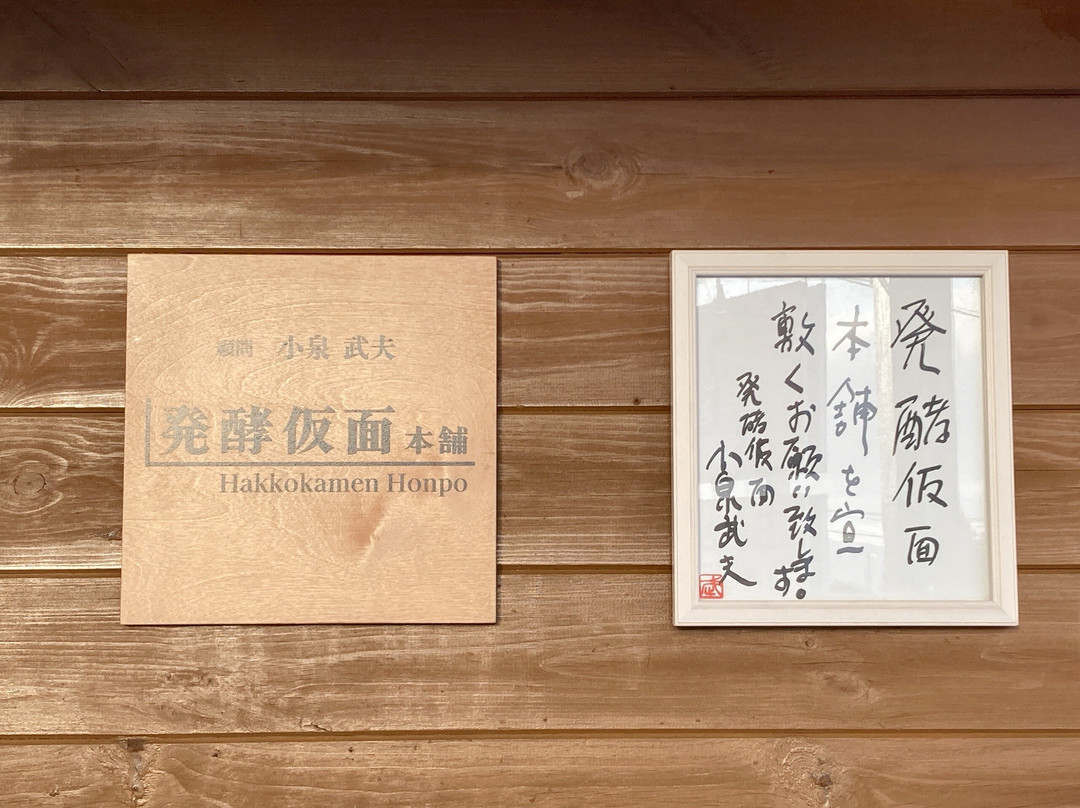 顧問 小泉 武夫
発酵仮面 本舗
Hakkokamen Honpo
発酵仮面
本舗を宣
敷くお願い致します。
発酵仮面
小泉武夫
武